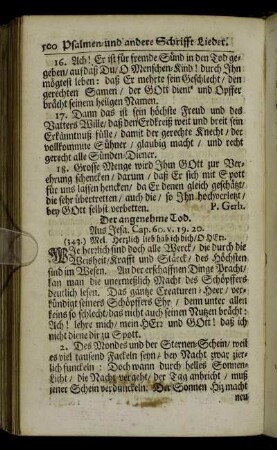 500 Psalmen und andere Schrifft Lieder.
16. Ach! Er ist für fremde Sünd in den Tod ge-
geben/ auf daß Du/ O Menschen-Kind! durch Ihn
mögtest leben: daß Er mehrte sein Geschlecht/ den
gerechten Samen/ der GOtt dient und Opffer
brächt seinem heilgen Namen.
17. Dann das ist sein höchste Freud und des
Vatters Wille/ daß den Erdkreiß weit und breit sein
Erkänntnuß fülle/ damit der gerechte Knecht/ der
vollkommne Sühner/ glaubig macht/ und recht
gerecht alle Sünden-Diener.
18. Grosse Menge wird Ihm GOtt zur Ver-
ehrung schencken/ darum/ daß Er sich mit Spott
für uns lassen hencken/ da Er denen gleich geschätzt/
die sehr übertretten/ auch die/ so Ihn hochverletzt/
bey GOtt selbst verbetten.
P. Gerh.
Der angenehme Tod.
Aus Jesa. Cap. 60. v. 19. 20.
(343.) Mel. Hertzlich lieb hab ich dich/ O HErr.
WIe herrlich sind doch alle Werck/ die durch die
Weisheit/ Krafft und Stärck/ des Höchsten
sind im Wesen. An der erschaffnen Dinge Pracht/
kan man die unermeßlich Macht des Schöpffers
deutlich lesen. Das gantze Creaturen-Heer/ ver-
kündigt seiners Schöpffers Ehr/ denn unter allen
keins so schlecht/ das nicht auch seinen Nutzen brächt:
Ach! lehre mich/ mein HErr und GOtt! daß ich
nicht diene dir zu Spott.
2. Des Mondes und der Sternen-Schein/ weil
es viel tausend Fackeln seyn/ bey Nacht zwar zier-
lich funckeln: Doch wann durch helles Sonnen-
Licht/ die Nacht vergeht/ der Tag anbricht/ muß
jener Schein verdunckeln. Der Sonnen Hiz macht
neu